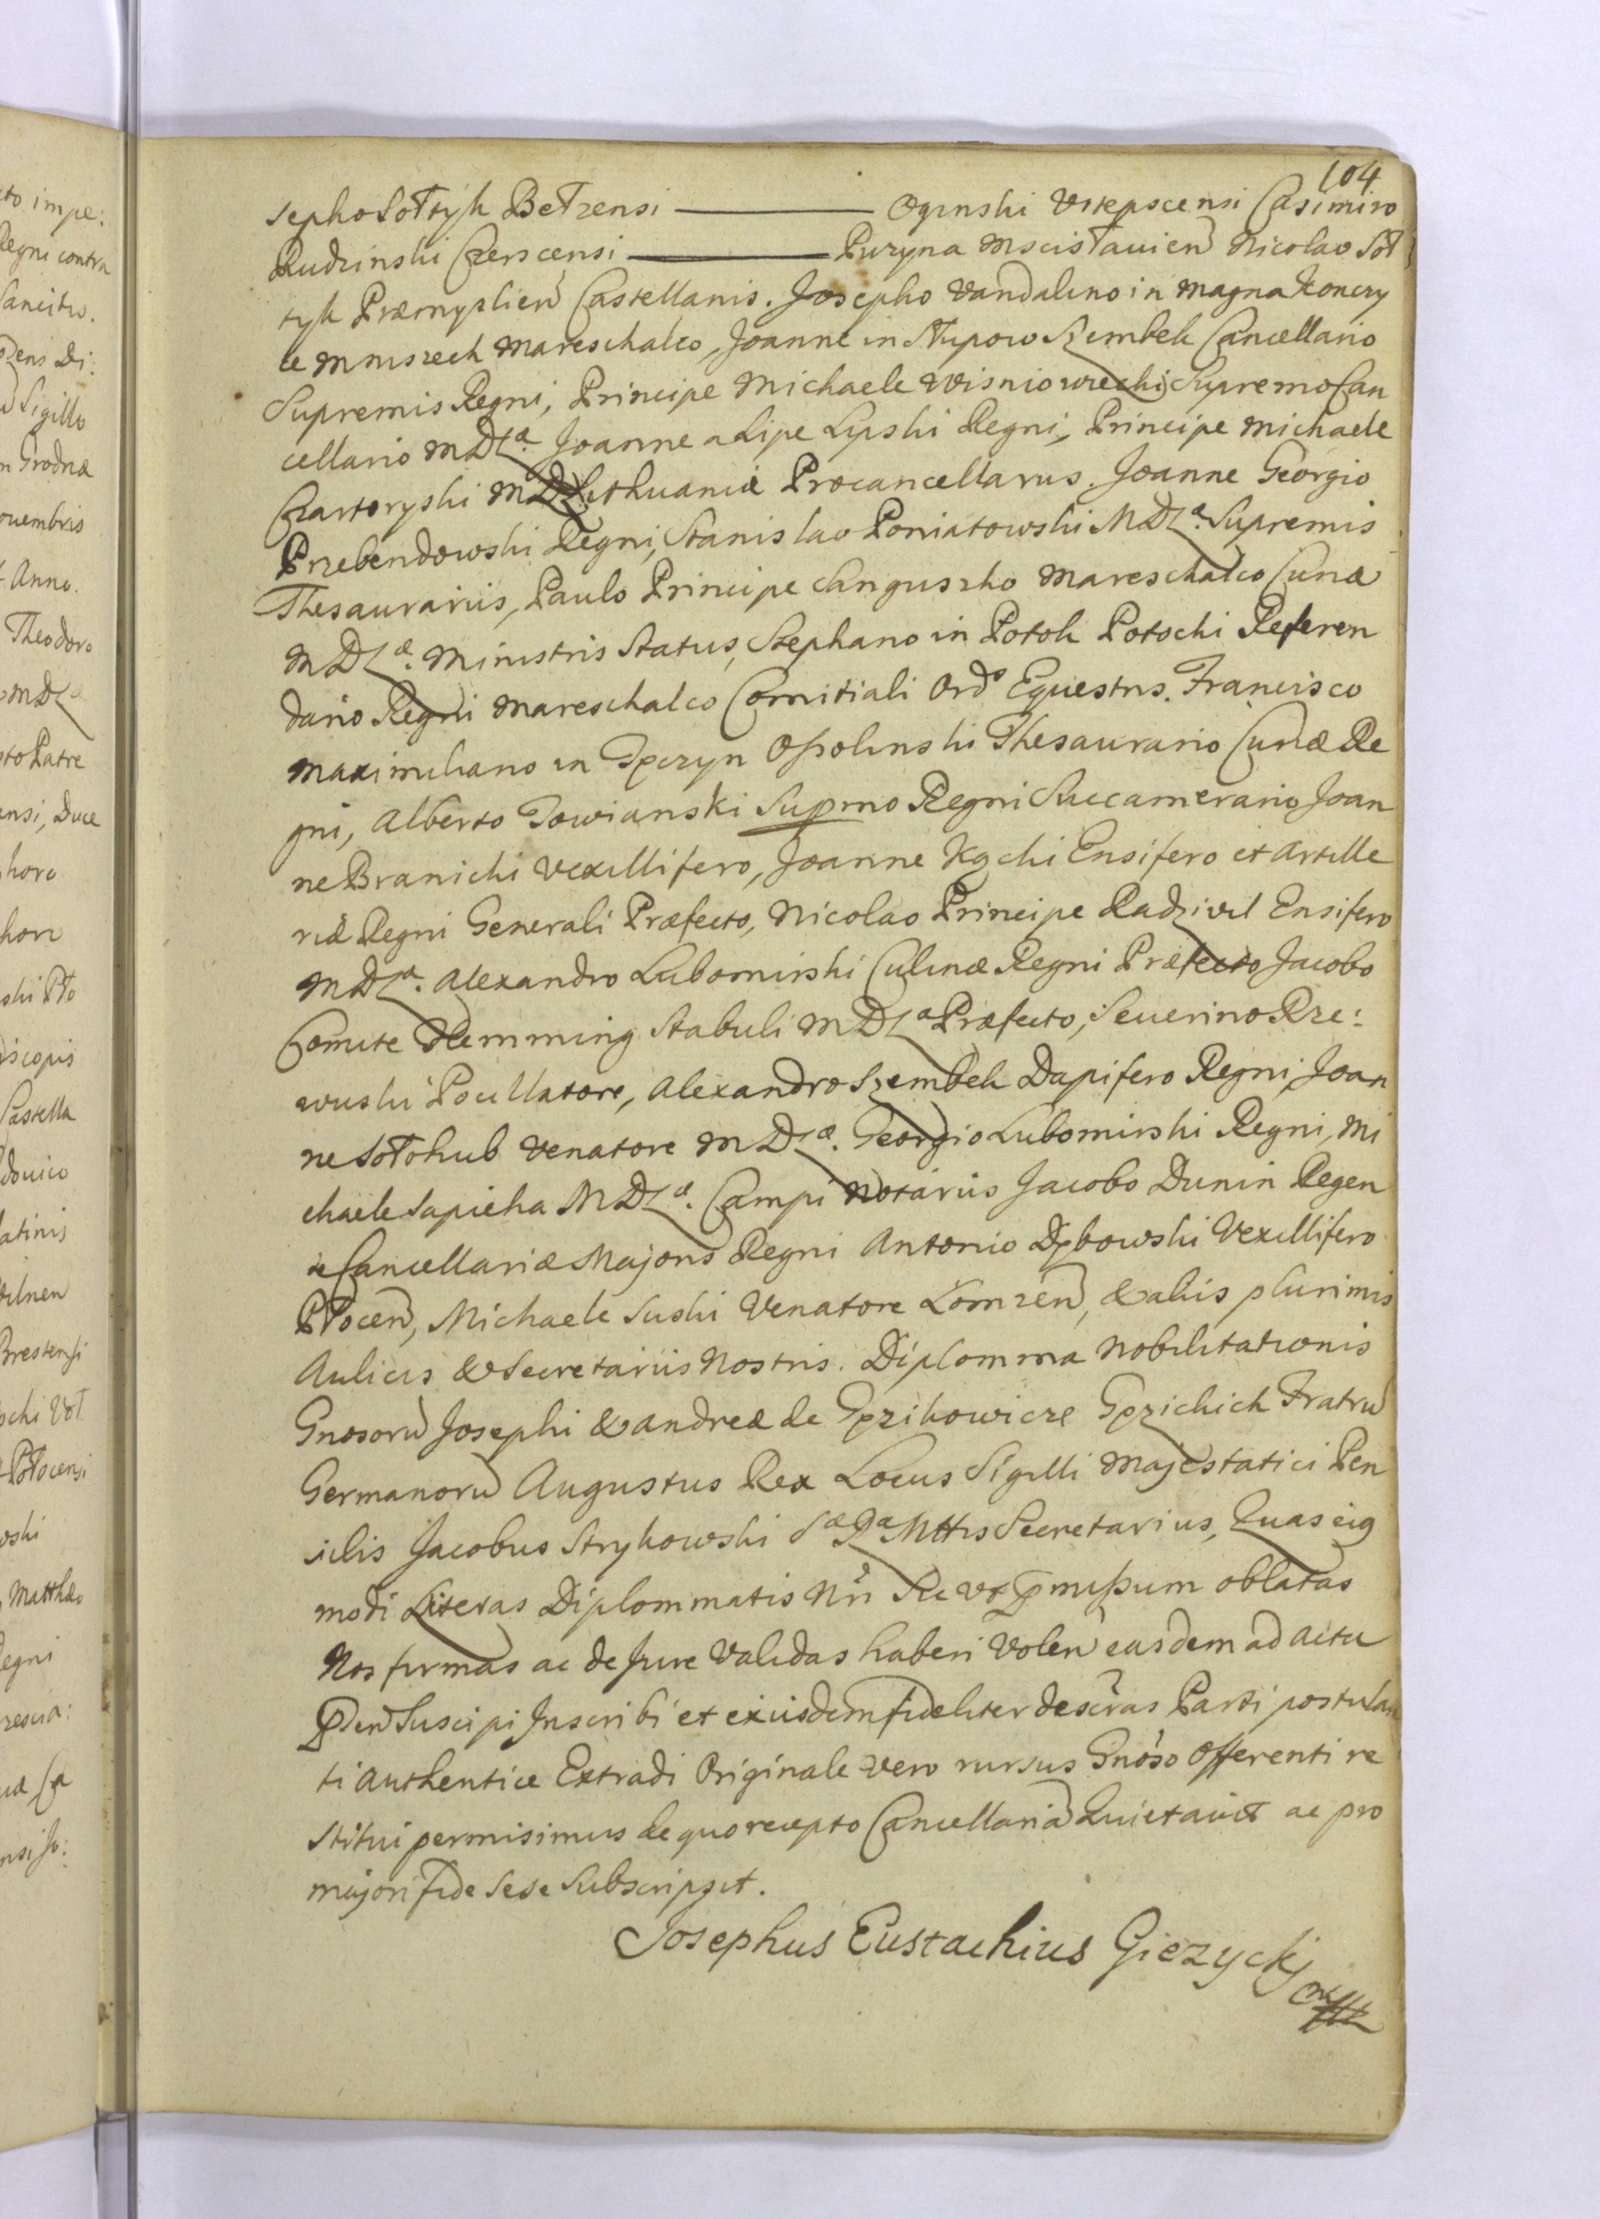 104
sepho Sołtyk Bełzensi ——— Oginski Vitepscensi Casimiro
Rudzinski Czerscensi ——— Puzyna Mscisłauien Nicolao Soł
tyk Præmyslien Castellanis. Josepho Vandalino in Magna Konczy
ce Mniszech Mareschalco, Joanne in Słupow Szembek Cancellario
Supremis Regni, Principe Michaele Wisniowiecki Supremo Can
cellario MDLæ. Joanne a Lipe Lipski Regni, Principe Michaele
Czartoryski MD Lithuaniæ Procancellarus. Joanne Georgio
Przebendowski Regni, Stanislao Poniatowski MDLæ. Supremis
Thesaurariis, Paulo Principe Sanguszko Mareschalco Curiæ
MDLæ. Ministris Status, Stephano in Potok Potocki Referen
dario Regni Mareschalco Comitiali Ords Equestris. Francisco
Maximiliano in Tęczyn Ossolinski Thesaurario Curiæ Re
gni, Alberto Towianski Supmo Regni Succamerario, Joan
ne Branicki Vexillifero, Joanne Kącki Ensifero et Artille
riæ Regni Generali Præfecto, Nicolao Principe Radzivil Ensifero
MDLæ. Alexandro Lubomirski Culinæ Regni Præfecto, Jacobo
Comite Flemming Stabuli MDLæ Præfecto, Seuerino Rze:
wuski Pocillatore, Alexandro Szembek Dapifero Regni, Joan
ne Sołohub Venatore MDLæ. Georgio Lubomirski Regni, Mi
chaele Sapieha MDLæ. Campi Notariis Jacobo Dunin Regen
te Cancellariæ Majoris Regni Antonio Dębowski Vexillifero
Płocen, Michaele Suski Venatore Łomzen, & aliis plurimis
Aulicis & Secretariis Nostris. Diplomma Nobilitationis
Gnosoru Josephi & Andreæ de Gęzikowicze Gęzichich Fratru
Germanoru Augustus Rex Locus Sigilli Majestatici Pen
silis Jacobus Strykowski Sæ Ræ Mttis Secretarius, Quas eig
modi Literas Diplommatis Nri Se ut pmissum oblatas
Nos firmas ac de Jure Validas haberi Volen easdem ad Acta
Pden Suscipi Inscribi et exiisdem fideliter descras Parti postulan
ti Authentice Extradi Originale vero rursus Gnoso Offerenti re
stitui permisimus de quo recepto Cancellaria Quietavit ac pro
majori fide Sese Subscripsit.
Josephus Eustachius Giezyckj